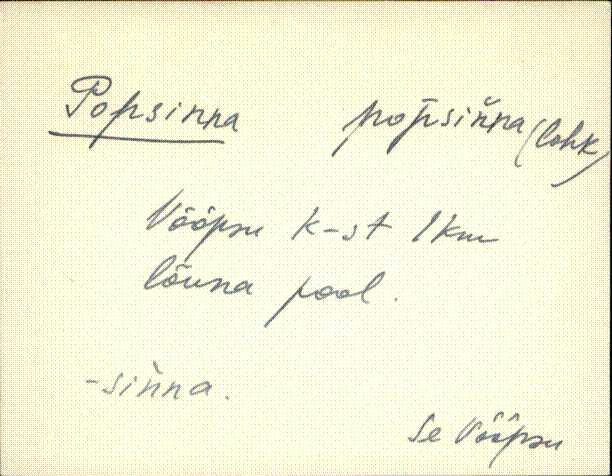 Popsinna pop̄sin̆na (lohk)
Vööpsu k-st 1 km
lõuna pool.
-sin̆na.
Se Vööpsu